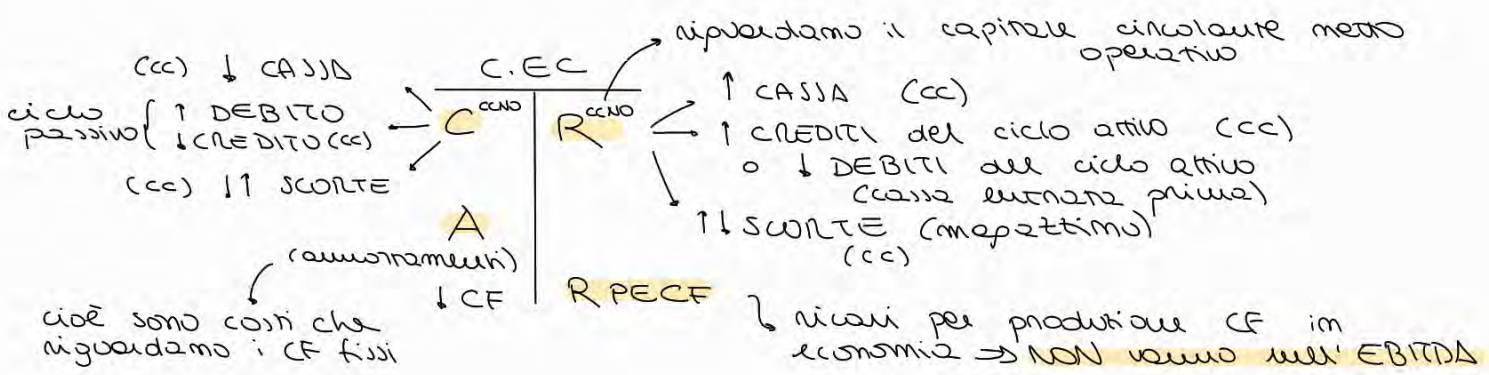 riguardano il capitale circolante netto operativo
(CC) ↓ CASSA
C.EC
↑ CASSA (CC)
ciclo passivo { ↑ DEBITO
↓ CREDITO (CC)
C CCNO
R CCNO
↑ CREDITI del ciclo attivo (CC)
o ↓ DEBITI del ciclo attivo
(cassa entrata prima)
(CC) ↓↑ SCORTE
↑↓ SCORTE (magattimo)
(CC)
A
(ammortamenti)
↓ CF
R PECF
cioè sono costi che
riguardano i CF fissi
ricavi per produzione CF in
economia => NON vanno nell'EBITDA